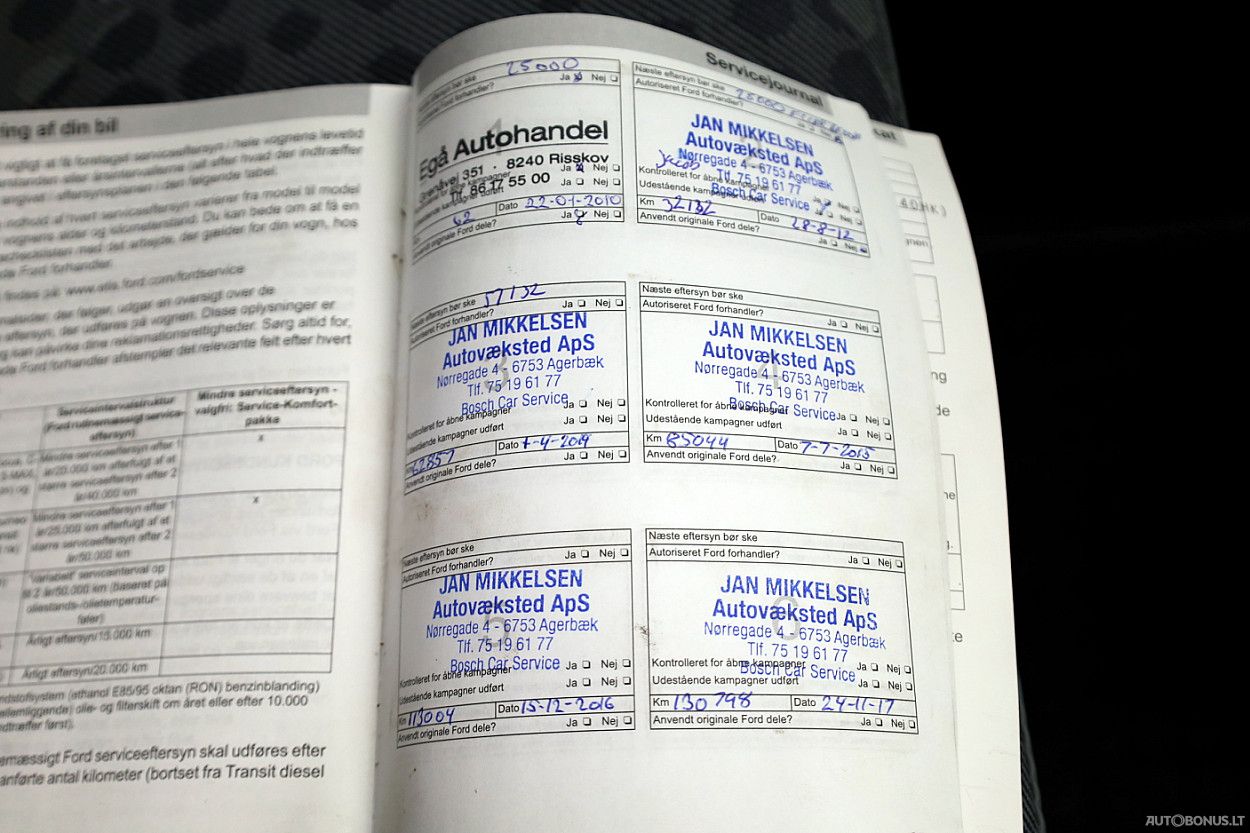 ring af din bil
vigtigt at få foretaget serviceeftersyn i hele vognens levetid
(alt efter hvad der indtræffer
serviceplanen i den følgende tabel.
indhold af hvert serviceeftersyn varierer fra model til model
vognens alder og kilometerstand. Du kan bede om at få en
med det arbejde, der gælder for din vogn, hos
Ford forhandler.
findes på: www.etis.ford.com/fordservice
der følger, udgør en oversigt over de
eftersyn, der udføres på vognen. Disse oplysninger er
kan påvirke dine reklamationsrettigheder. Sørg altid for,
Ford forhandler afstempler det relevante felt efter hvert
Serviceintervalstruktur
(Ford rutinemæssigt service-
eftersyn)
Mindre serviceeftersyn -
valgfri: Service-Komfort-
pakke
Mindre serviceeftersyn efter 1
år/20.000 km efterfulgt af et
større serviceeftersyn efter 2
år/40.000 km
x
Mindre serviceeftersyn efter 1
år/25.000 km efterfulgt af et
større serviceeftersyn efter 2
år/50.000 km
x
"Variabelt" serviceinterval op
til 2 år/50.000 km (baseret på
oliestands-/olietemperatur-
føler)
Årligt eftersyn/15.000 km
Årligt eftersyn/20.000 km
(ethanol E85/95 oktan (RON) benzinblanding)
olie- og filterskift om året eller efter 10.000
indtræffer først).
Ford serviceeftersyn skal udføres efter
anførte antal kilometer (bortset fra Transit diesel
Servicejournal
Næste eftersyn bør ske 25000
Autoriseret Ford forhandler? Ja Nej
1
Egå Autohandel
Grenåvej 351 · 8240 Risskov
Tlf. 86 17 55 00
Ja Nej
Ja Nej
62 Dato 22-01-2010
Anvendt originale Ford dele? Ja Nej
Næste eftersyn bør ske 25000
Autoriseret Ford forhandler?
2
JAN MIKKELSEN
Autovæksted ApS
Nørregade 4 - 6753 Agerbæk
Tlf. 75 19 61 77
Bosch Car Service
Jacob
Kontrolleret for åbne kampagner
Udestående kampagner udført
Km 32132 Dato 28-8-12
Anvendt originale Ford dele? Ja Nej
Næste eftersyn bør ske 57132
Autoriseret Ford forhandler? Ja Nej
3
JAN MIKKELSEN
Autovæksted ApS
Nørregade 4 - 6753 Agerbæk
Tlf. 75 19 61 77
Bosch Car Service
Kontrolleret for åbne kampagner Ja Nej
Udestående kampagner udført Ja Nej
62857 Dato 7-4-2014
Anvendt originale Ford dele? Ja Nej
Næste eftersyn bør ske
Autoriseret Ford forhandler? Ja Nej
4
JAN MIKKELSEN
Autovæksted ApS
Nørregade 4 - 6753 Agerbæk
Tlf. 75 19 61 77
Bosch Car Service
Kontrolleret for åbne kampagner Ja Nej
Udestående kampagner udført Ja Nej
Km 85044 Dato 7-7-2015
Anvendt originale Ford dele? Ja Nej
Næste eftersyn bør ske
Autoriseret Ford forhandler? Ja Nej
5
JAN MIKKELSEN
Autovæksted ApS
Nørregade 4 - 6753 Agerbæk
Tlf. 75 19 61 77
Bosch Car Service
Kontrolleret for åbne kampagner Ja Nej
Udestående kampagner udført Ja Nej
Km 113004 Dato 15-12-2016
Anvendt originale Ford dele? Ja Nej
Næste eftersyn bør ske
Autoriseret Ford forhandler? Ja Nej
6
JAN MIKKELSEN
Autovæksted ApS
Nørregade 4 - 6753 Agerbæk
Tlf. 75 19 61 77
Bosch Car Service
Kontrolleret for åbne kampagner Ja Nej
Udestående kampagner udført Ja Nej
Km 130798 Dato 24-11-17
Anvendt originale Ford dele? Ja Nej
AUTOBONUS.LT